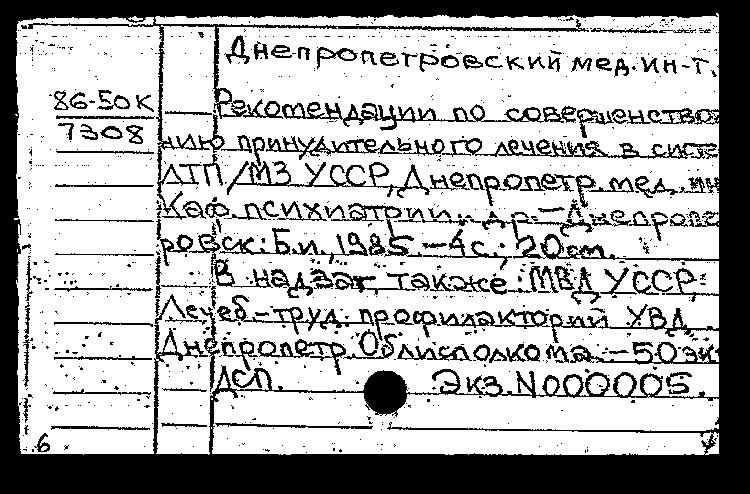 Днепропетровский мед. ин-т.
86-50К
7308
Рекомендации по совершенство
нию принудительного лечения в систе
ЛТП/МЗ УССР, Днепропетр. мед. ин
Каф. психиатрии и др. – Днепропе
ровск: Б.и., 1985. – 4 с.; 20 см.
В надзаг. также: МВД УССР,
Лечеб-труд. профилакторий УВД
Днепропетр. Облисполкома. – 50 эк
ДСП. Экз. N000005.
6